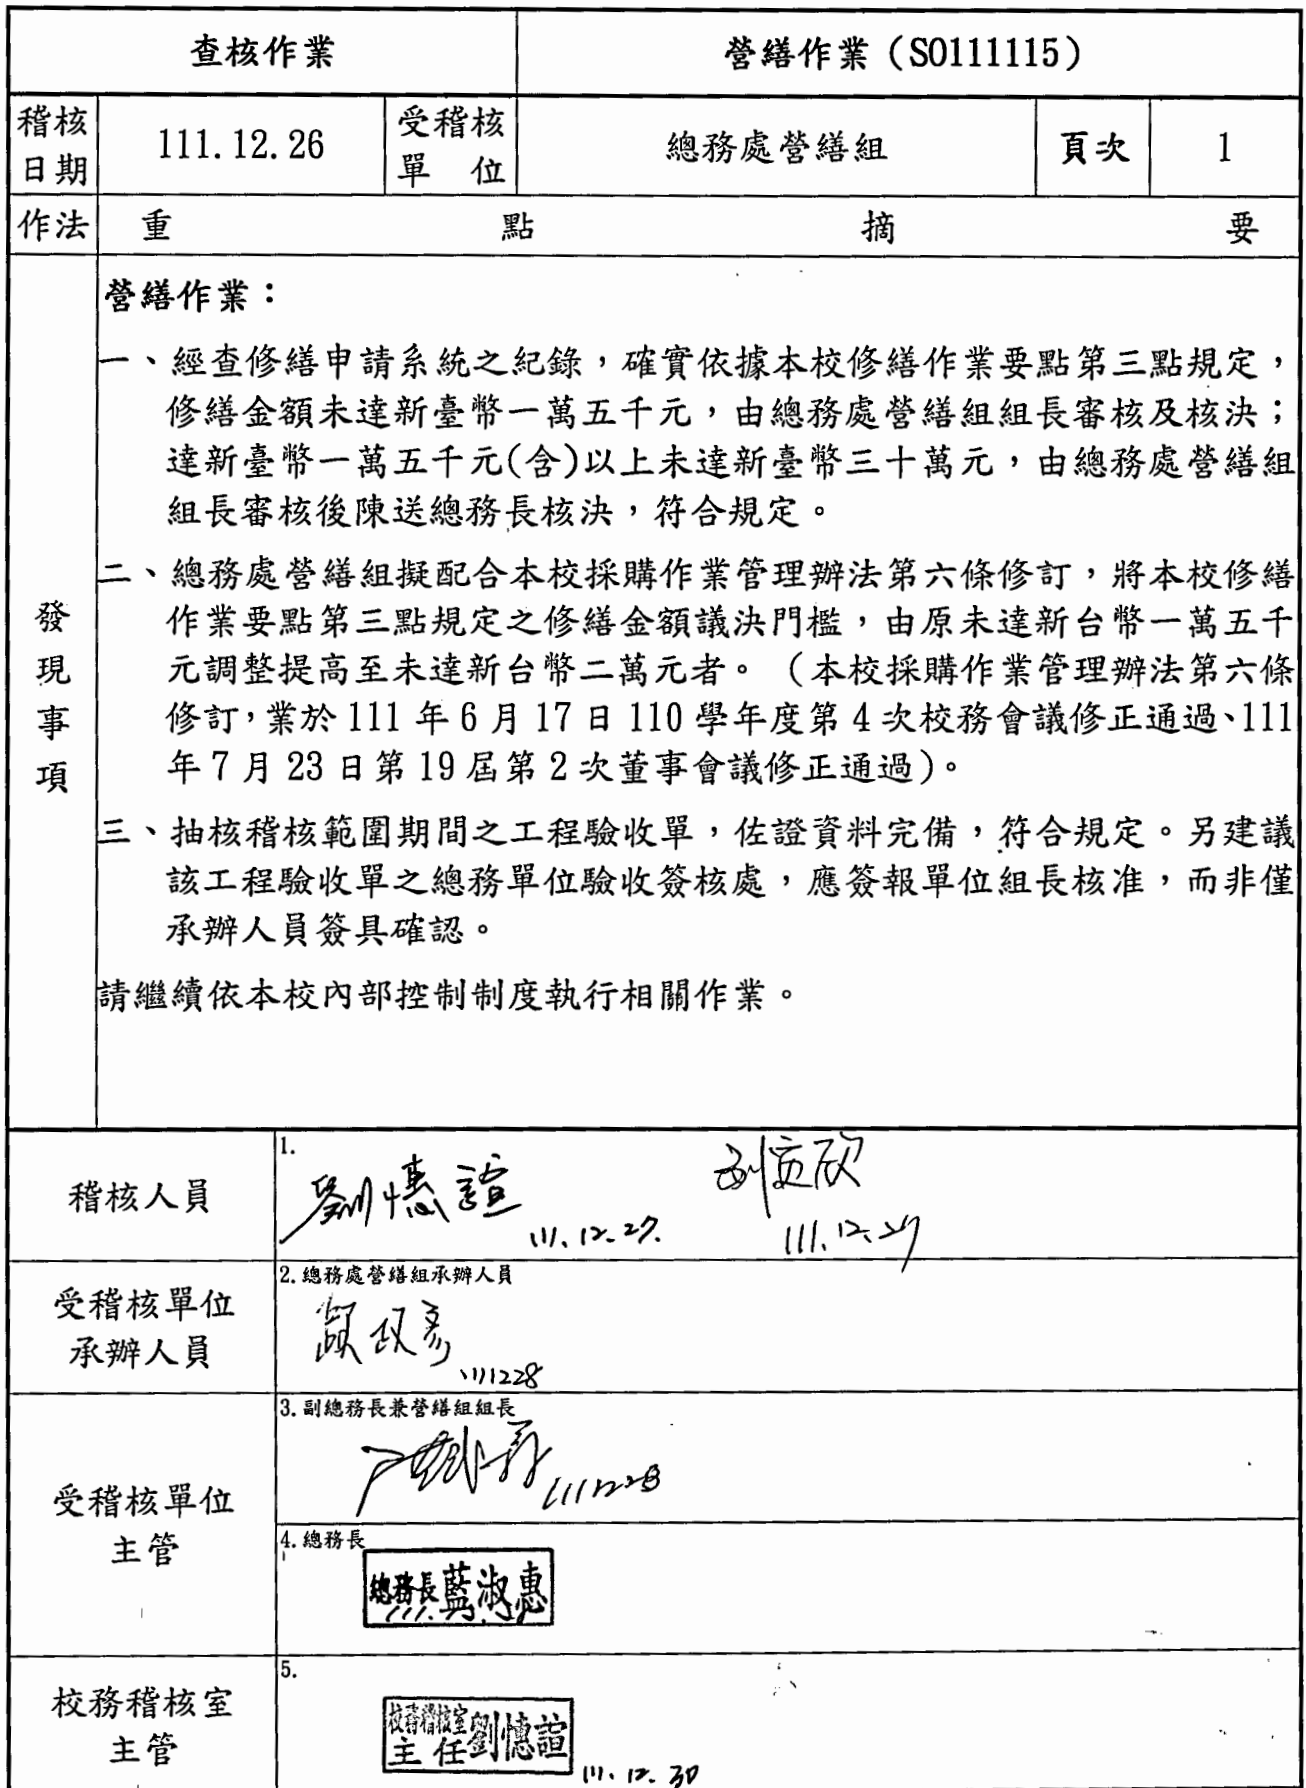 查核作業
營繕作業（S0111115）
稽核日期
111.12.26
受稽核單　位
總務處營繕組
頁次
1
作法
重　點　摘　要
發現事項
營繕作業：
一、經查修繕申請系統之紀錄，確實依據本校修繕作業要點第三點規定，
修繕金額未達新臺幣一萬五千元，由總務處營繕組組長審核及核決；
達新臺幣一萬五千元(含)以上未達新臺幣三十萬元，由總務處營繕組
組長審核後陳送總務長核決，符合規定。
二、總務處營繕組擬配合本校採購作業管理辦法第六條修訂，將本校修繕
作業要點第三點規定之修繕金額議決門檻，由原未達新台幣一萬五千
元調整提高至未達新台幣二萬元者。（本校採購作業管理辦法第六條
修訂，業於 111 年 6 月 17 日 110 學年度第 4 次校務會議修正通過、111
年 7 月 23 日第 19 屆第 2 次董事會議修正通過）。
三、抽核稽核範圍期間之工程驗收單，佐證資料完備，符合規定。另建議
該工程驗收單之總務單位驗收簽核處，應簽報單位組長核准，而非僅
承辦人員簽具確認。
請繼續依本校內部控制制度執行相關作業。
稽核人員
1.
劉憓諠
111.12.27.
111.12.27
受稽核單位
承辦人員
2.總務處營繕組承辦人員
111228
受稽核單位
主管
3.副總務長兼營繕組組長
111228
4.總務長
總務長藍淑惠
校務稽核室
主管
5.
校務稽核室
主任劉憓諠
111.12.30